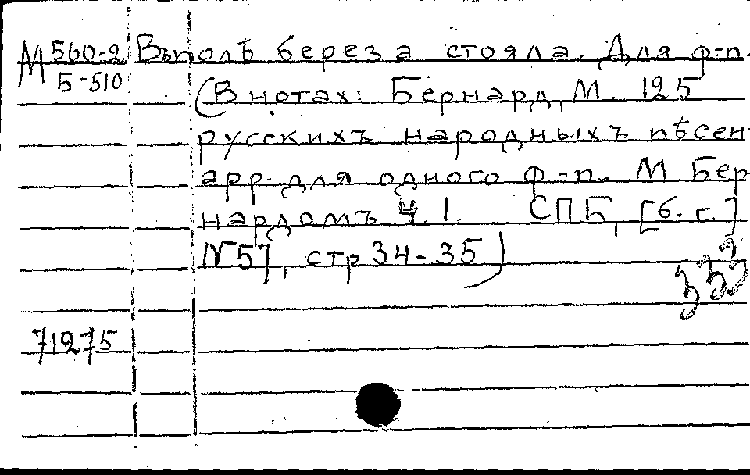 М 560-2 Въ полѣ береза стояла. Для ф-п.
Б-510 (В нотах: Бернард, М. 125
русскихъ народныхъ пѣсен
арр. для одного ф-п. М Бер-
нардомъ Ч. I. СПБ, [б. г.]
N 57, стр 34-35)
71275